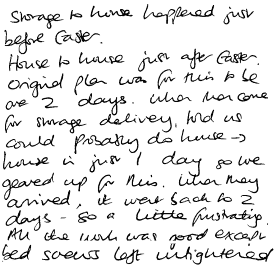 Storage to house happened just
before Easter.
House to house just after Easter.
Original plan was for this to be
over 2 days. When man came
for storage delivery, told us
could probably do house →
house in just 1 day so we
geared up for this. When they
arrived, it went back to 2
days - so a little frustrating.
All the work was good except
bed screws left untightened